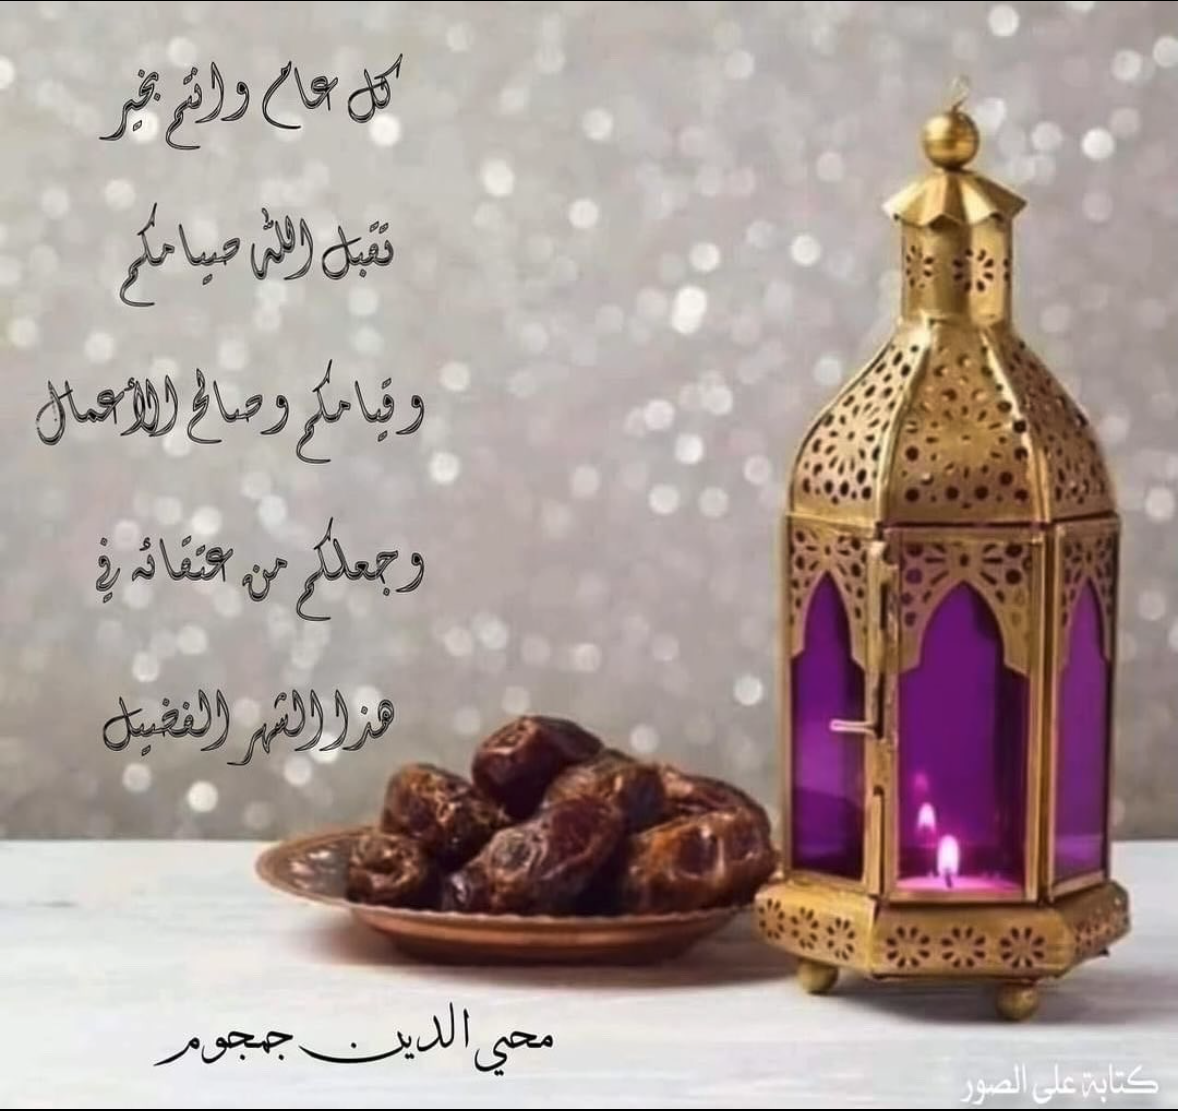 كل عام وانتم بخير
تقبل الله صيامكم
وقيامكم وصالح الأعمال
وجعلكم من عتقائه في
هذا الشهر الفضيل
محيي الدين جمجوم
كتابة على الصور